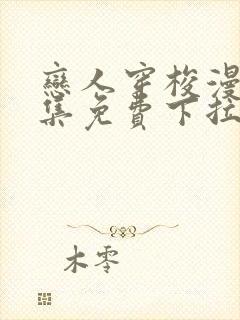 戀人穿梭漫
集免費下拉
木零